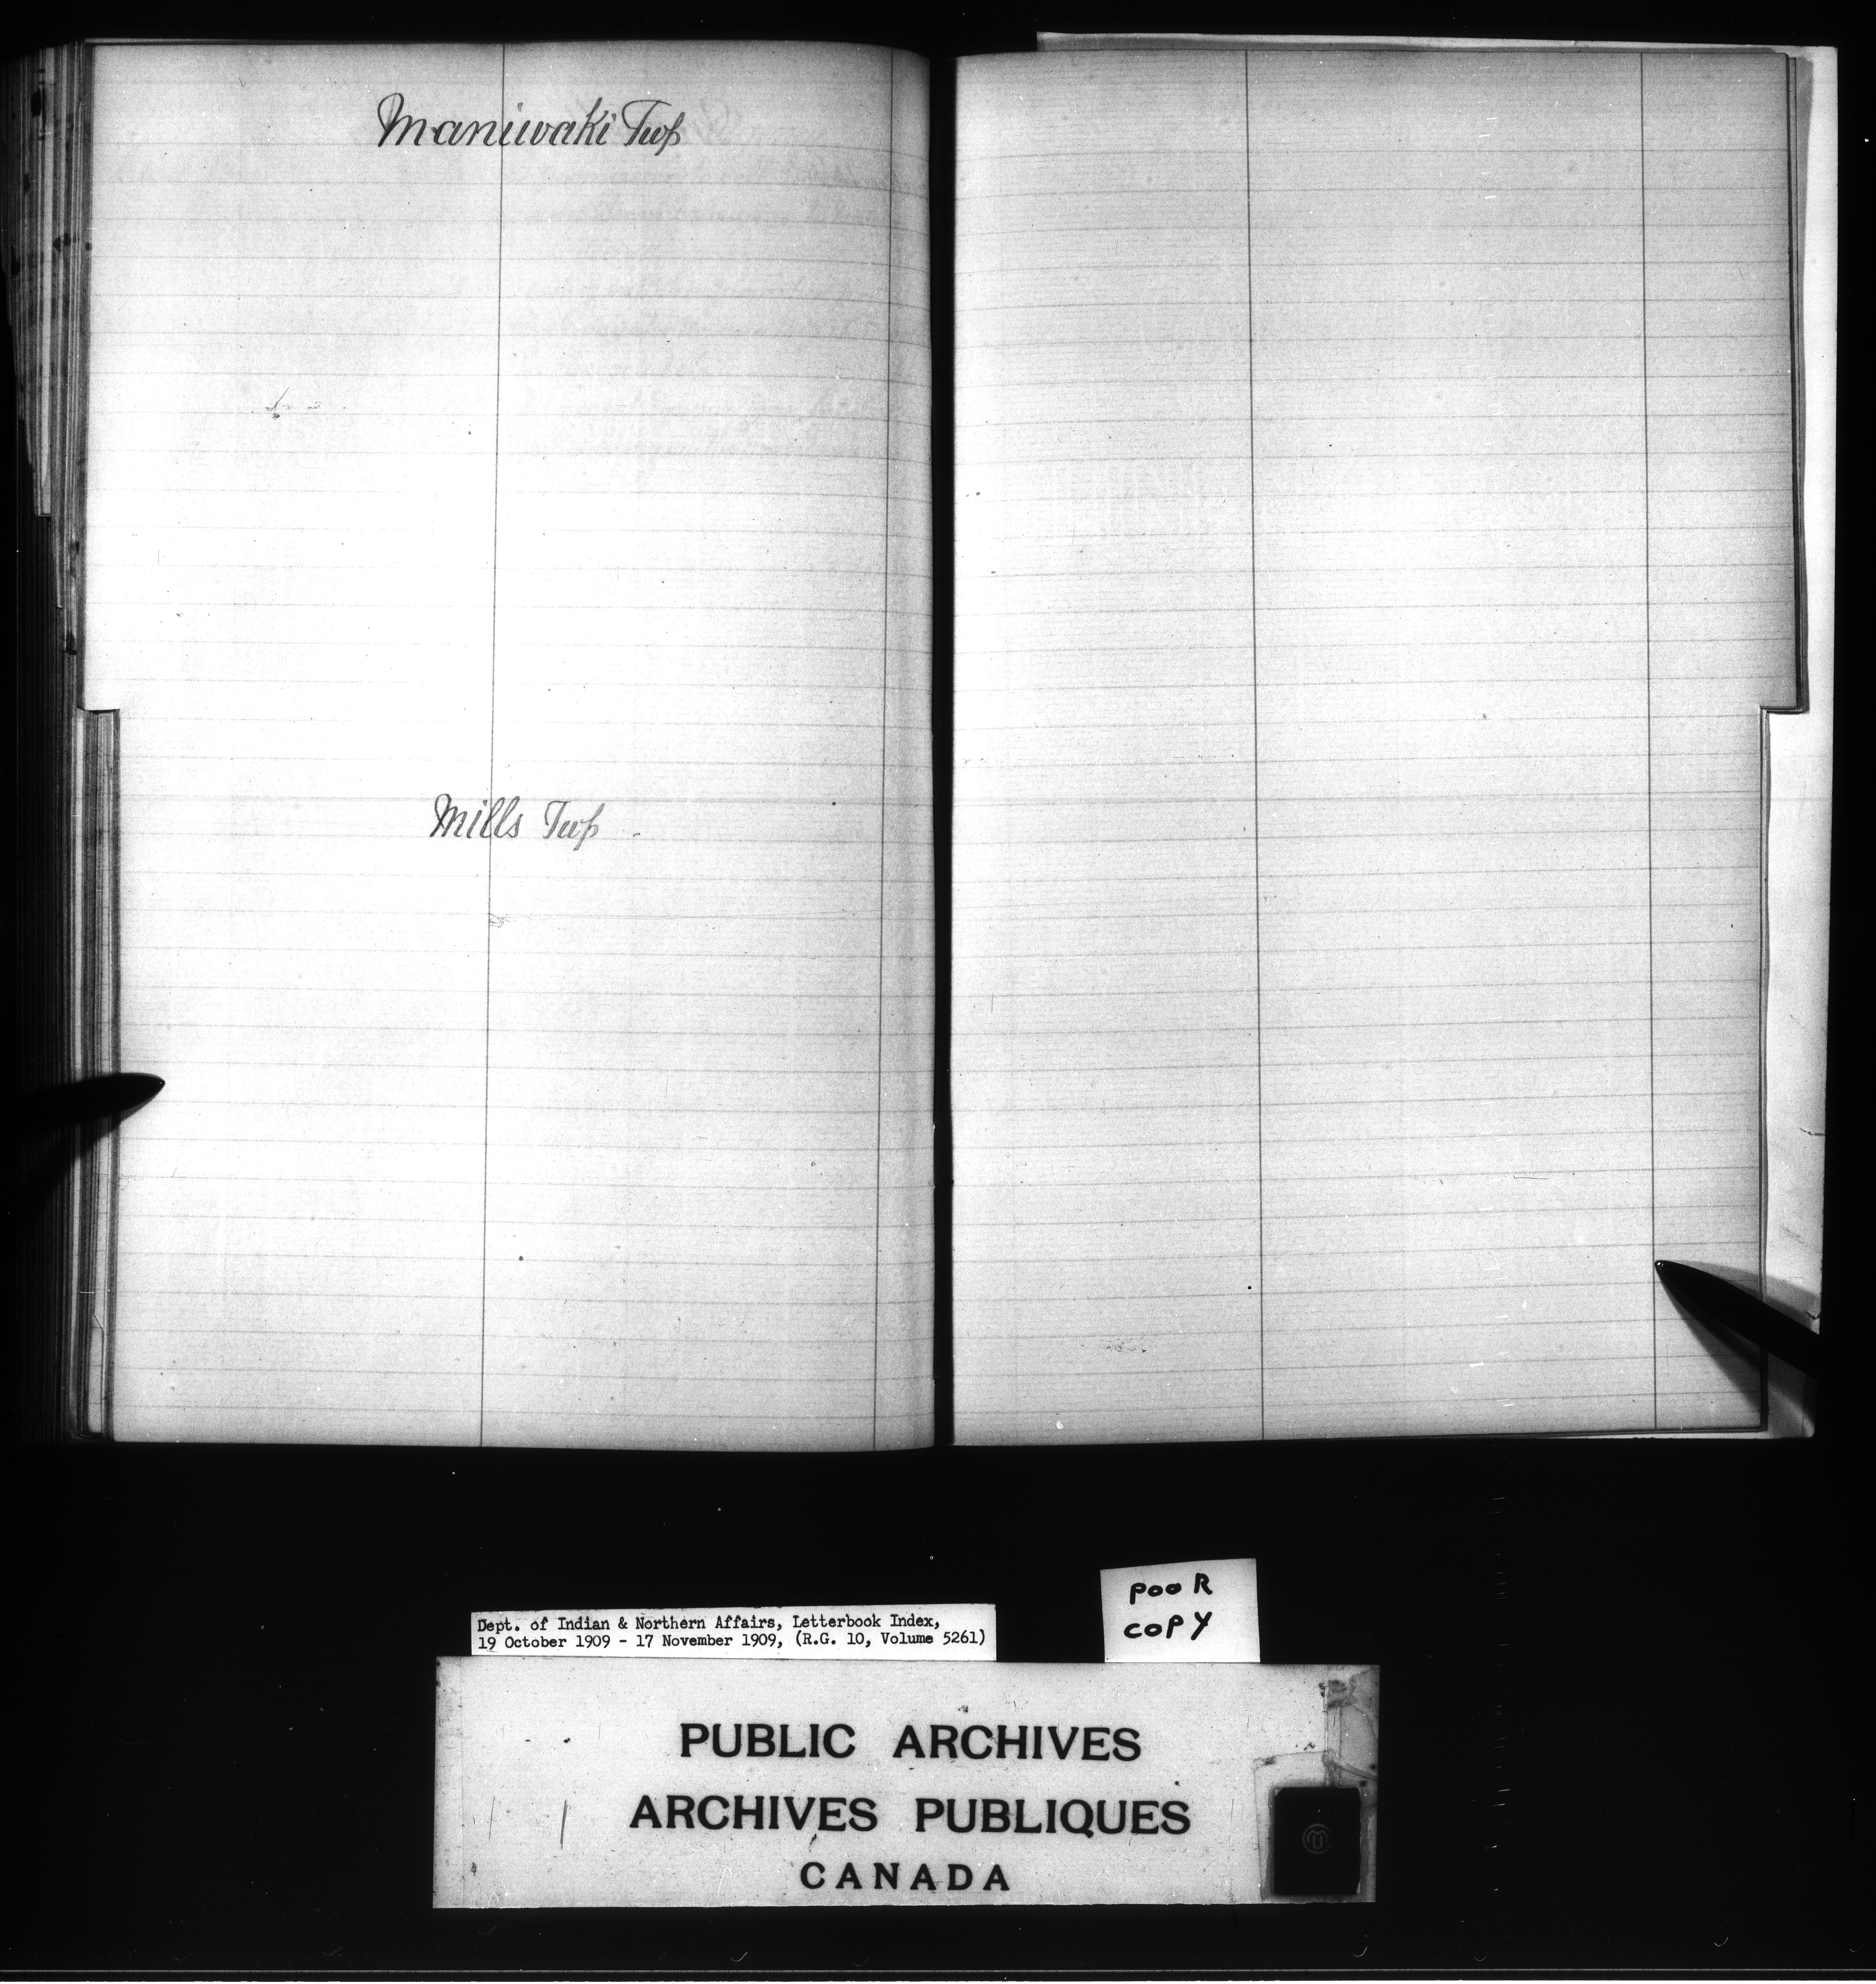 Maniwaki Twp
Mills Twp
Dept. of Indian & Northern Affairs, Letterbook Index,
19 October 1909 - 17 November 1909, (R.G. 10, Volume 5261)
POOR
COPY
PUBLIC ARCHIVES
ARCHIVES PUBLIQUES
CANADA